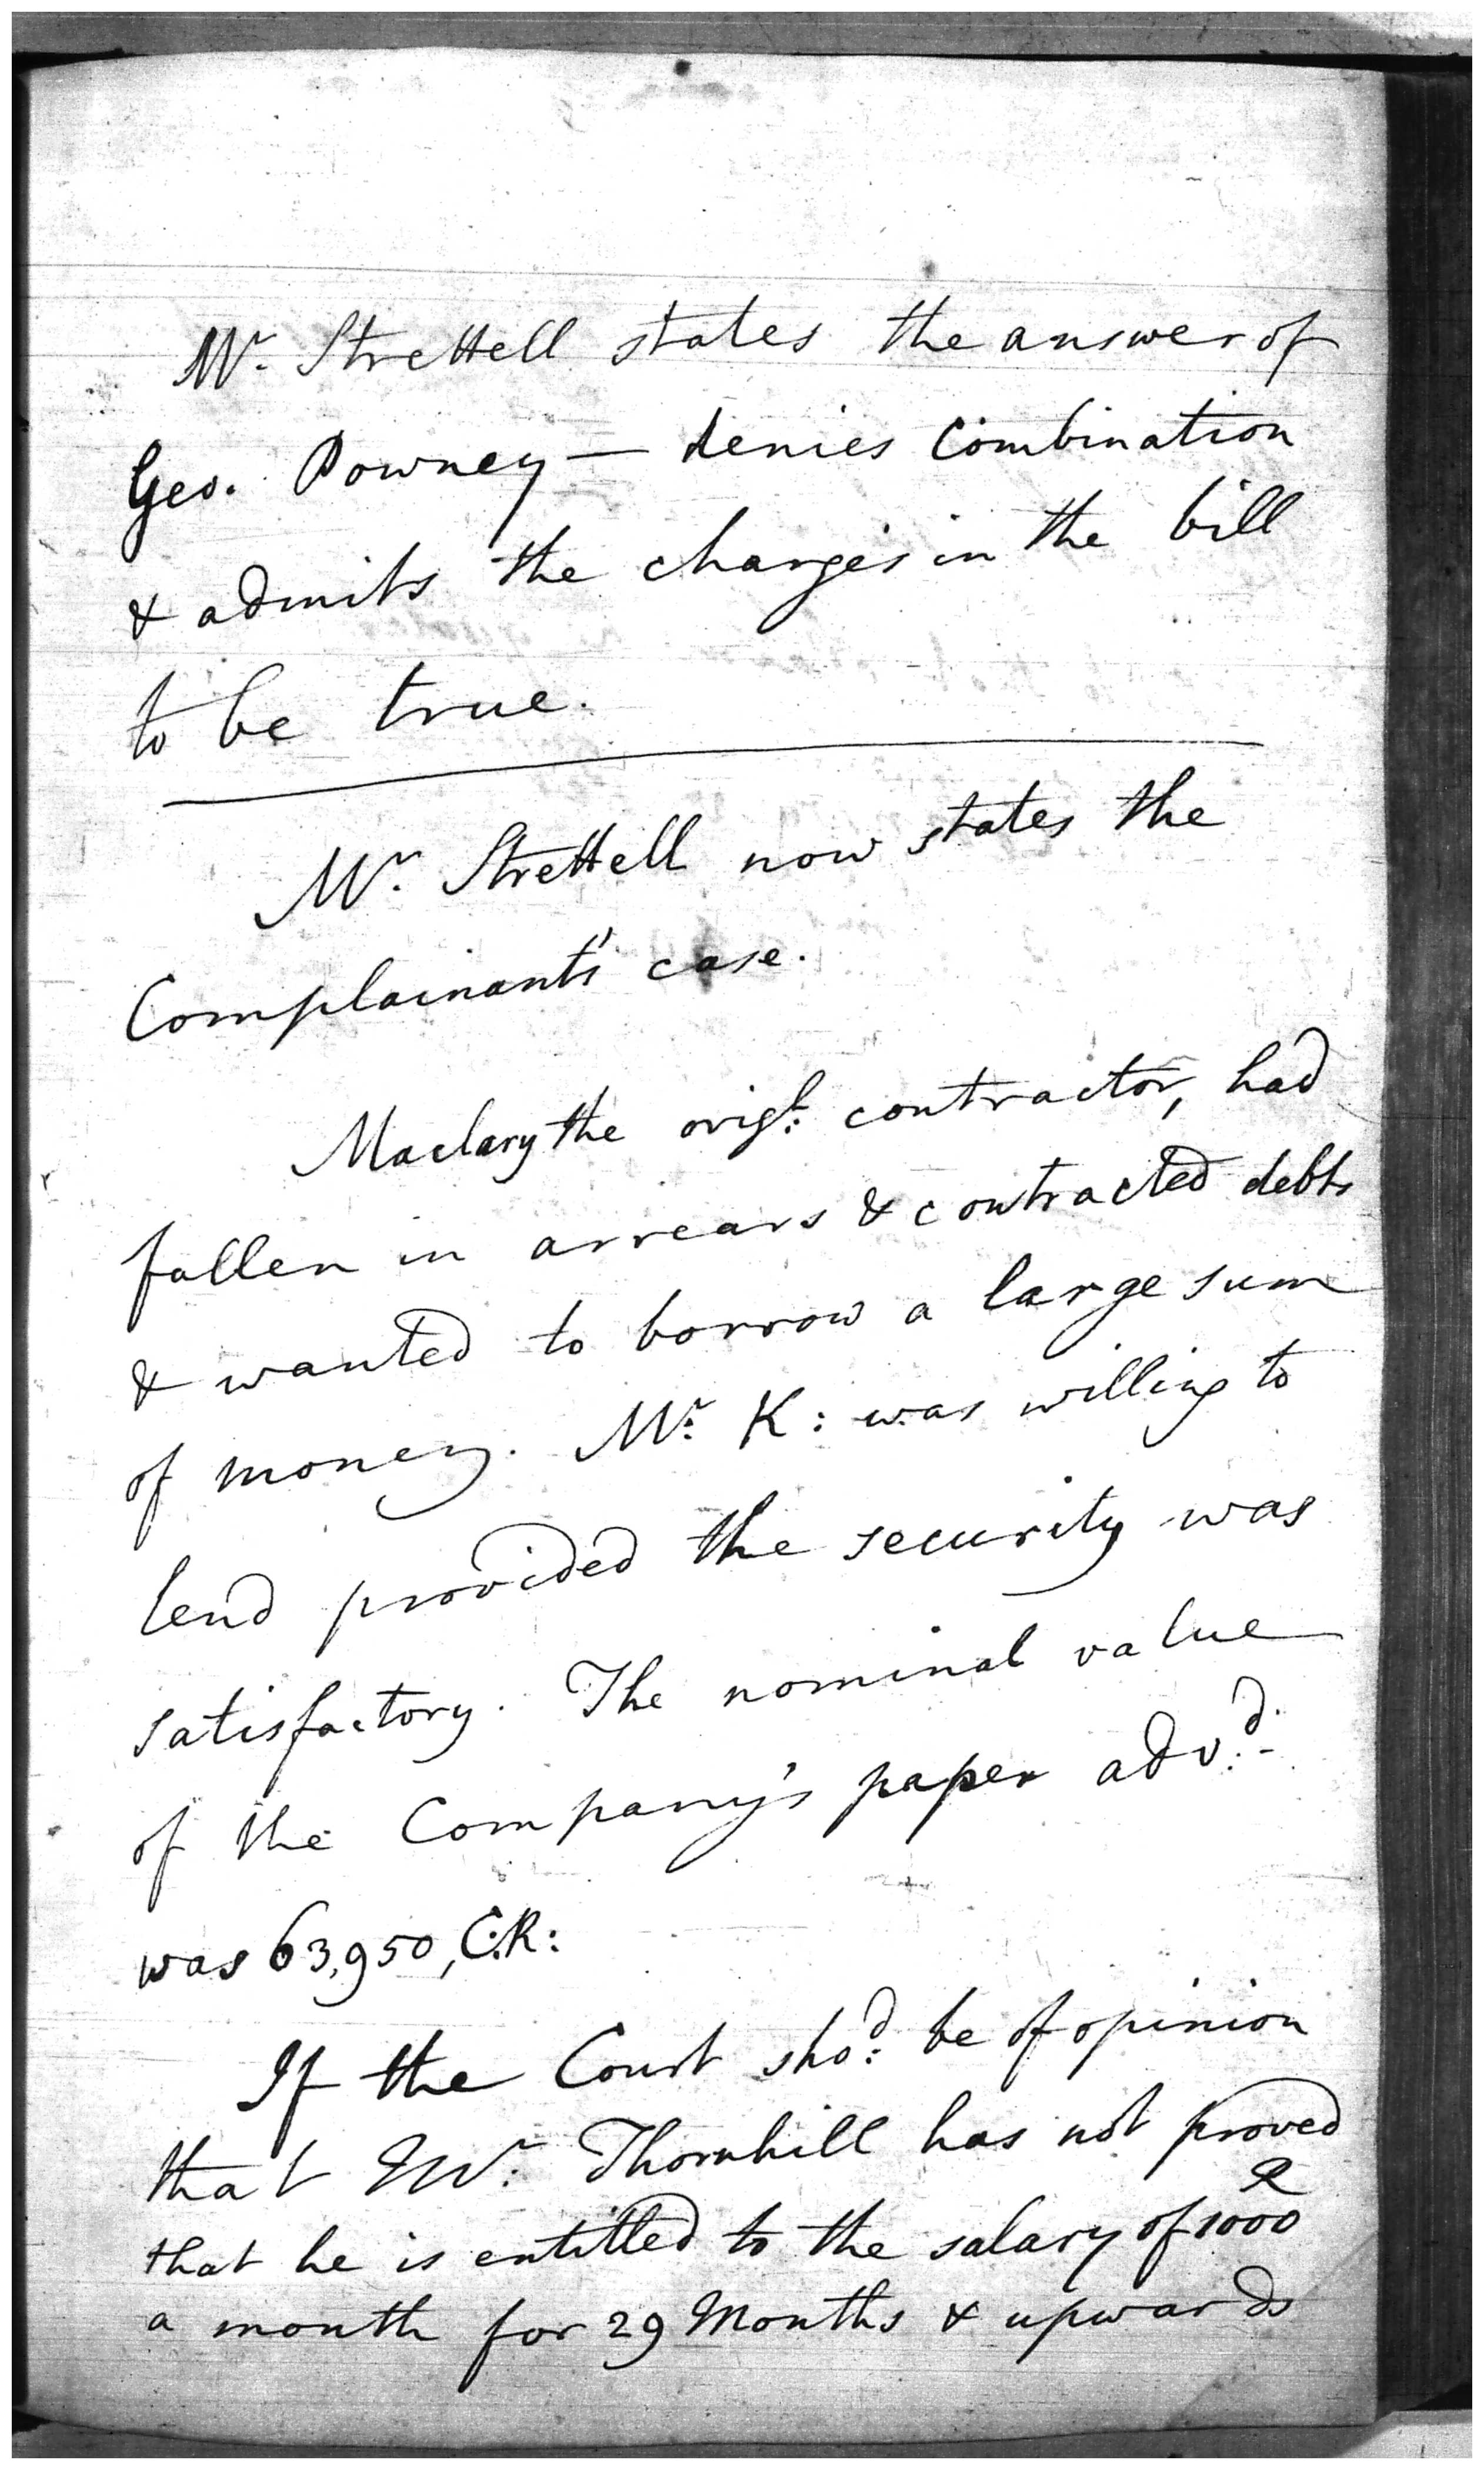 Mr. Strettell states the answer of
Geo. Powney — denies Combination
& admits the charges in the bill
to be true.
Mr. Strettell now states the
Complainant's case.
Maclary the origl: contractor, had
fallen in arrears & contracted debts
& wanted to borrow a large sum
of money. Mr: K: was willing to
lend provided the security was
satisfactory. The nominal value
of the Company's paper adv:d.
was 63,950, C:R:
If the Court sho:d be of opinion
that Mr. Thornhill has not proved
that he is entitled to the salary of 1000 R
a month for 29 Months & upwards